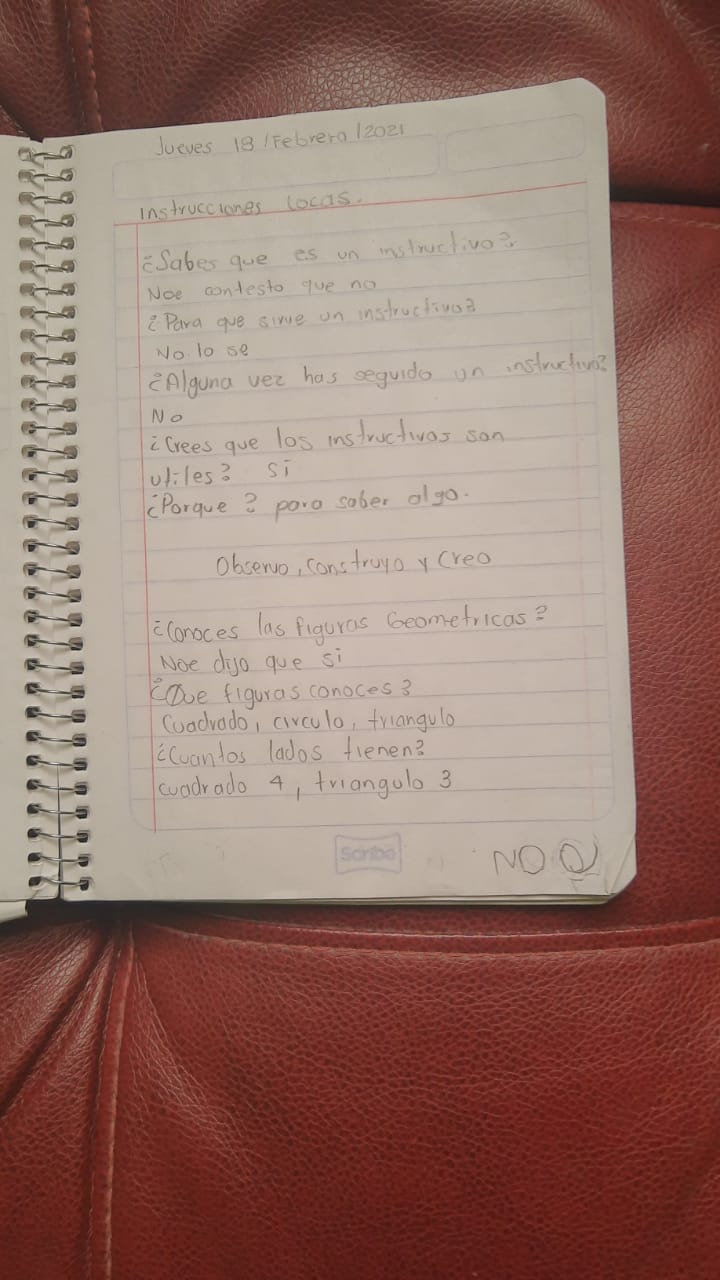 Jueves 18/Febrero/2021
Instrucciones locas.
¿Sabes que es un instructivo?
Noe contesto que no
¿Para que sirve un instructivo?
No lo se
¿Alguna vez has seguido un instructivo?
No
¿Crees que los instructivos son
utiles? si
¿Porque? para saber algo.
Observo, construyo y creo
¿Conoces las figuras Geometricas?
Noe dijo que si
¿Que figuras conoces?
Cuadrado, circulo, triangulo
¿Cuantos lados tienen?
cuadrado 4, triangulo 3
Scribe